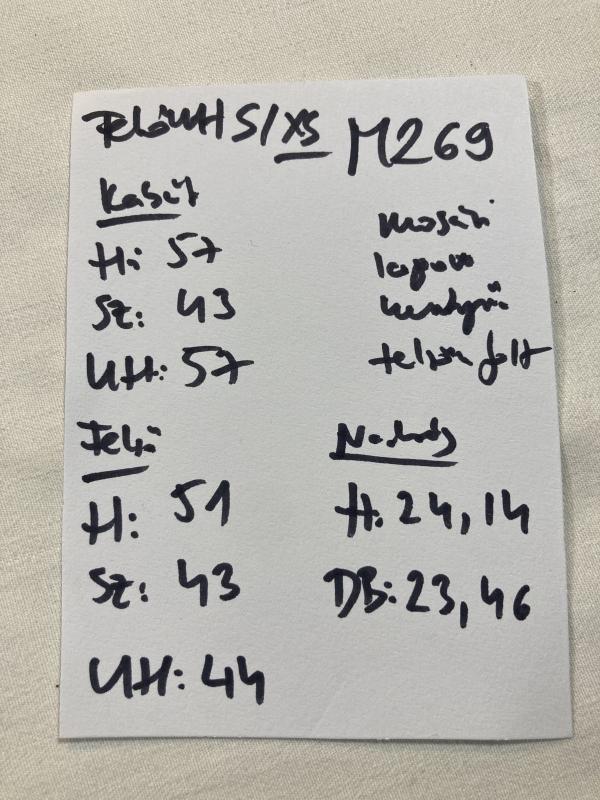 S/XS M269
Kabát
H: 57
Sz: 43
UH: 57
lapon
felsőn folt
Felső
H: 51
Sz: 43
UH: 44
Nadrág
H: 24, 14
DB: 23, 46